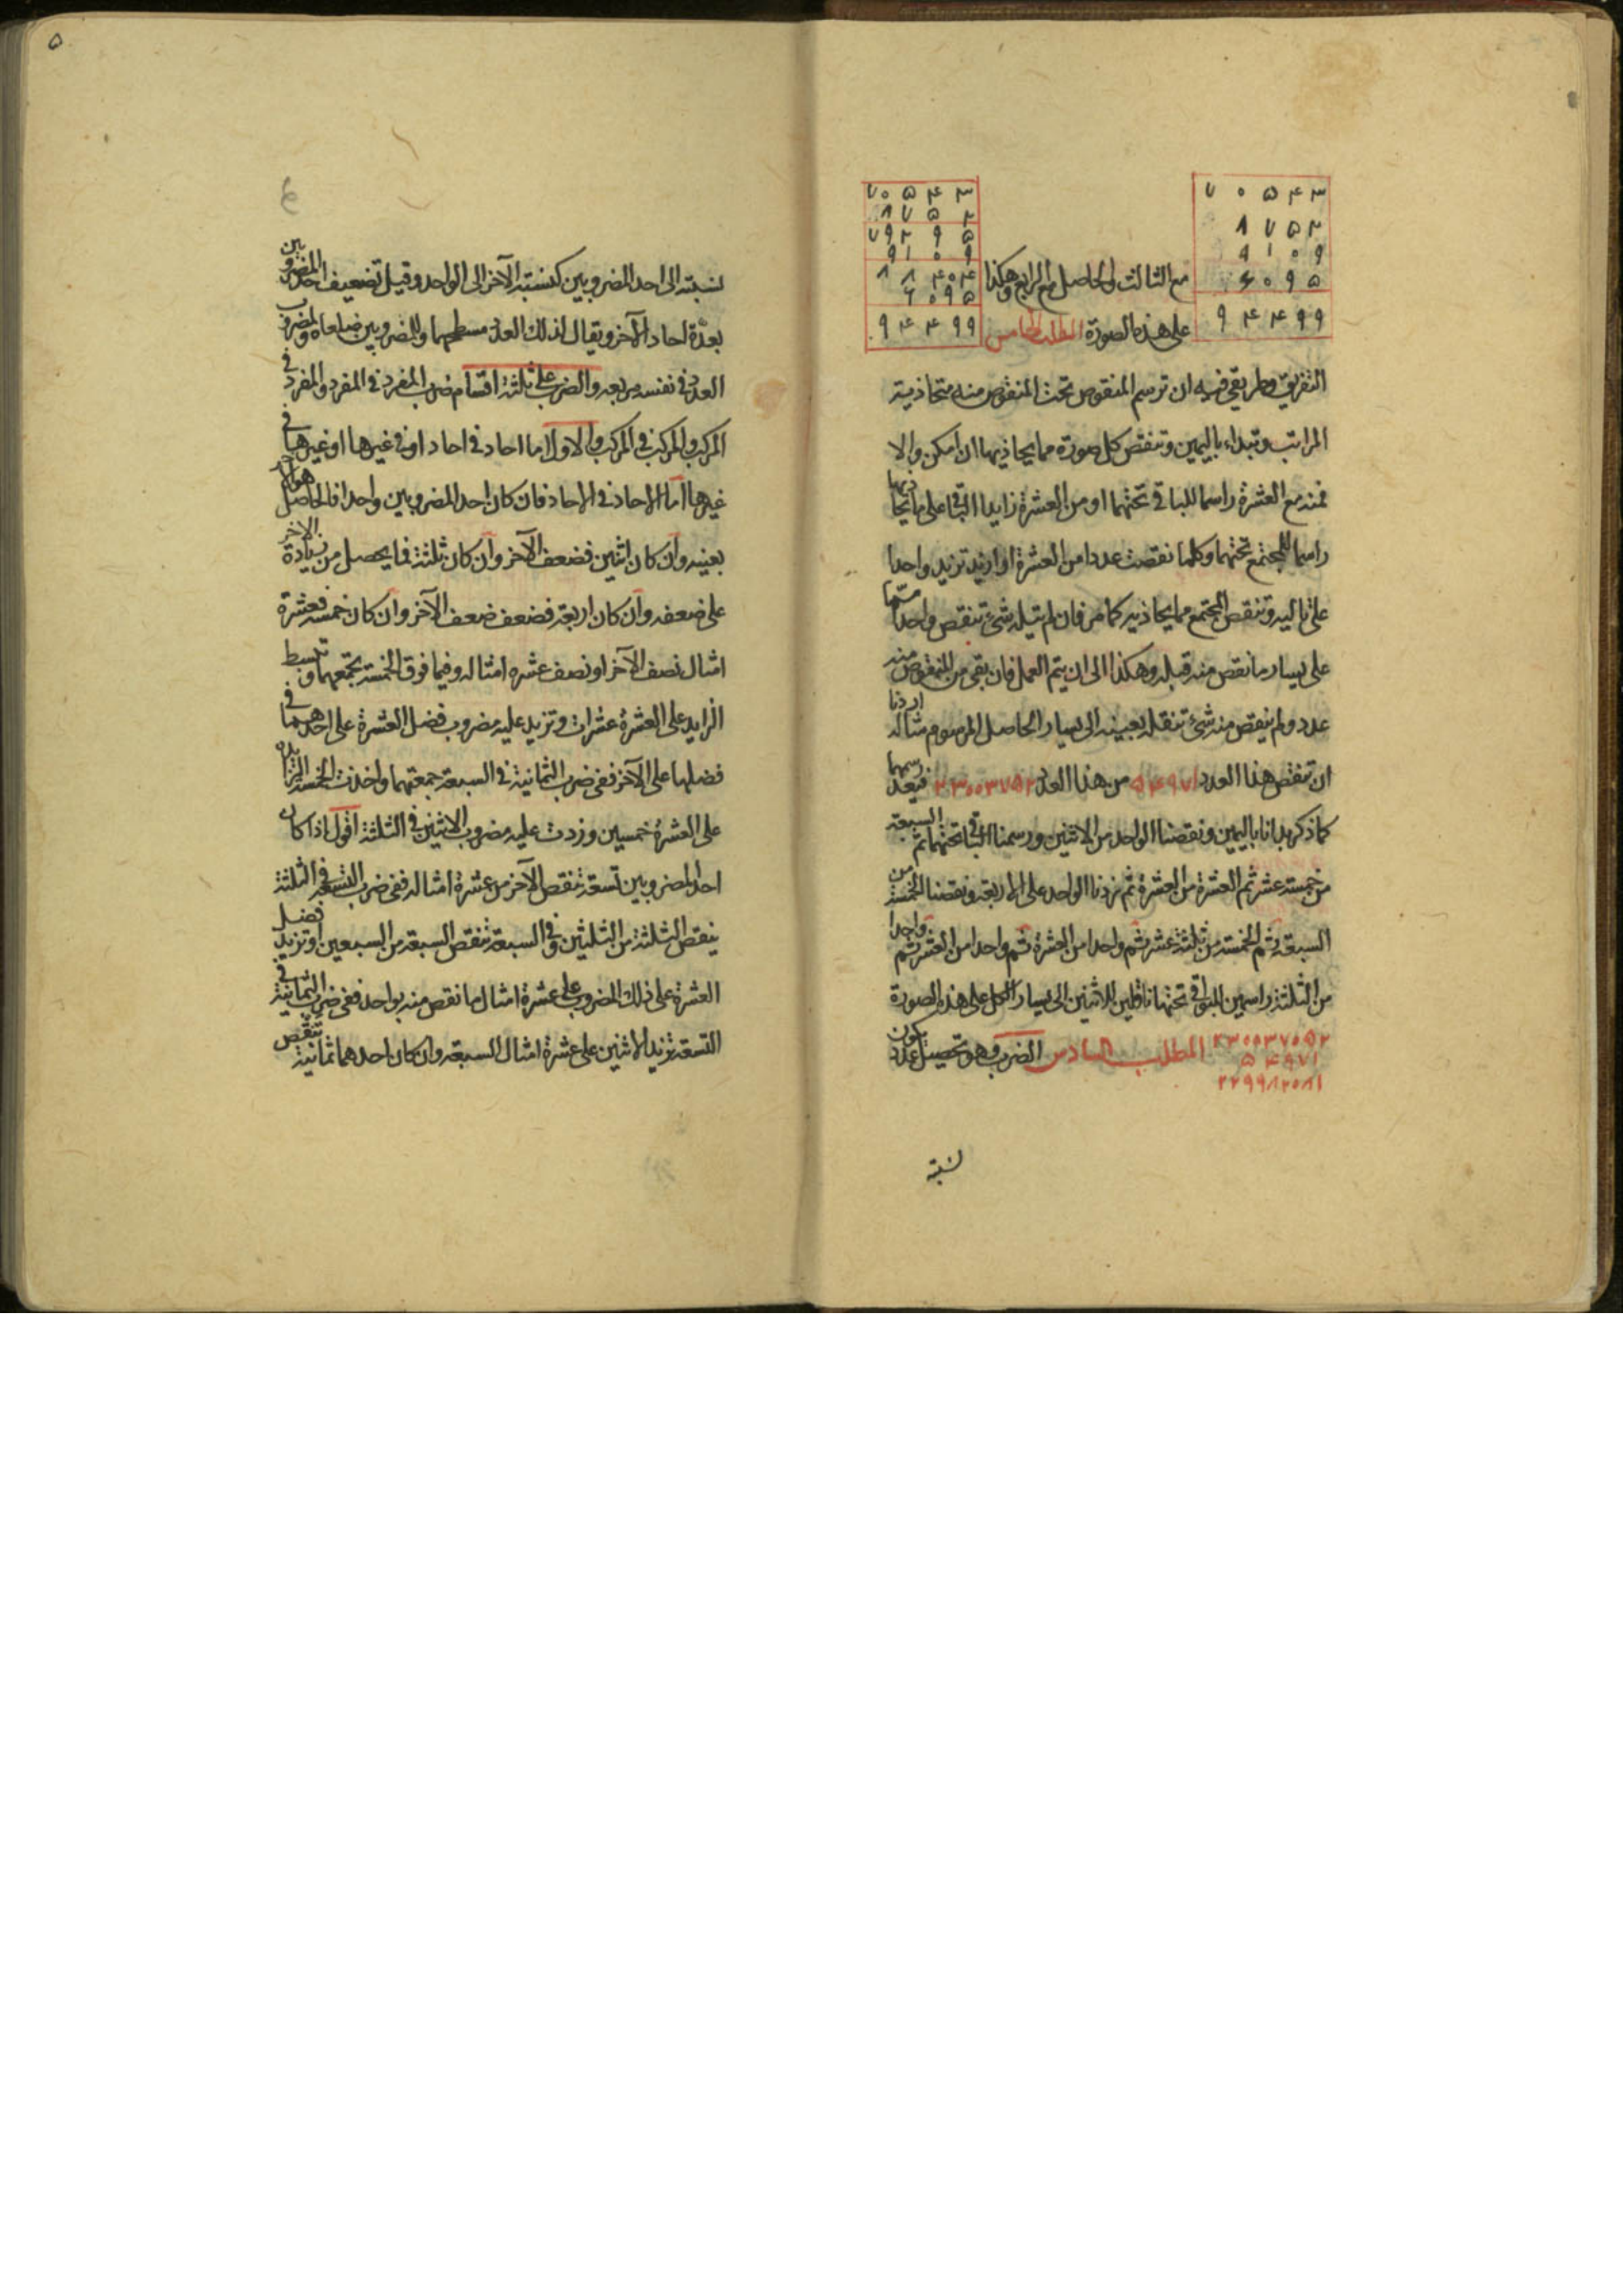 ٧٠٥۴٣
٨٧٥٢
٩١٠٩
۶٠٩٥
٩۴۴٩٩
٧٠٥۴٣
٨٧٥٢
٧٩٢٩٥
٩١٠٩
٨٨۴٠۴
۶٠٩٥
٩۴۴٩٩
مع الثالث والحاصل مع الرابع وهكذا
على هذه الصورة المطلب الخامس
التفريق وطريقي فيه ان ترسم المنقوص تحت المنقوص منه متحاذية
المراتب وتبداء باليمين وتنقص كل صورة مما يحاذيها ان امكن والا
فمنه مع العشرة راسما للباقي تحتهما او من العشرة زايدا الباقي على ما يحاذيها
راسما للمجتمع تحتهما وكلما نقصت عددا من العشرة او ازيد تزيد واحدا
على تاليه وتنقص المجتمع مما يحاذيه كما مر فان لم يتله شئ تنقص واحدا مما
على يسار ما نقص منه قبله وهكذا الى ان يتم العمل فان بقى من المنقوص منه
عدد ولم ينقص منه شئ تنقله بعينه الى يسار الحاصل المرسوم مثاله اردنا
ان تنقص هذا العدد ٥۴٩٧١ من هذا العدد ٢٣٠٠٣٧٥٢ فبعد رسمهما
كما ذكر بدانا باليمين ونقصنا الواحد من الاثنين ورسمنا الباقي تحتهما ثم السبعة
من خمسة عشر ثم العشرة من العشرة ثم زدنا الواحد على الاربعة ونقصنا الخمسة من
السبعة ثم الخمسة من ثلثة عشر ثم واحدا من العشرة ثم واحدا من العشر ثم واحدا
من الثلثة راسمين للبواقي تحتها ناقلين للاثنين الى يسار الكل على هذه الصورة
٢٣٠٠٣٧٠٥٢
٥۴٩٧١
٢٢٩٩٨٢٠٨١
المطلب السادس الضرب وهو تحصيل عدد يكون
نسبته
٥
نسبته الى احد المضروبين كنسبة الآخر الى الواحد وقيل تضعيف احد المضروبين
بعدة احاد الآخر ويقال لذلك العدد مسطحهما وللمضروبين ضلعاه ولمضروب
العدد في نفسه مربعه والضرب على ثلثة اقسام ضرب المفرد في المفرد والمفرد في
المركب والمركب في المركب والاول اما احاد في احاد او في غيرها او غيرها في
غيرها اما الاحاد في الاحاد فان كان احد المضروبين واحدا فالحاصل هو الآخر
بعينه وان كان اثنين فضعف الآخر وان كان ثلثة فما يحصل من زيادة الآخر
على ضعفه وان كان اربعة فضعف ضعف الآخر وان كان خمسة فعشرة
امثال نصف الآخر او نصف عشره امثاله وفيما فوق الخمسة تجمعهما وتبسط
الزايد على العشرة عشرات وتزيد عليه مضروب فضل العشرة على احدهما في
فضلها على الآخر ففي ضرب الثمانية في السبعة جمعتهما واخذت الخمسة الزايدة
على العشرة خمسين وزدت عليه مضروب الاثنين في الثلثة اقول اذا كان
احد المضروبين تسعة تنقص الآخر من عشرة امثاله ففي ضرب التسعة في الثلثة
ينقص الثلثة من الثلثين وفي السبعة تنقص السبعة من السبعين او تزيد فضل
العشرة على ذلك المضروب على عشرة امثال ما نقص منه بواحد ففي ضرب الثمانية في
التسعة تزيد الاثنين على عشرة امثال السبعة وان كان احدهما ثمانية تنقص